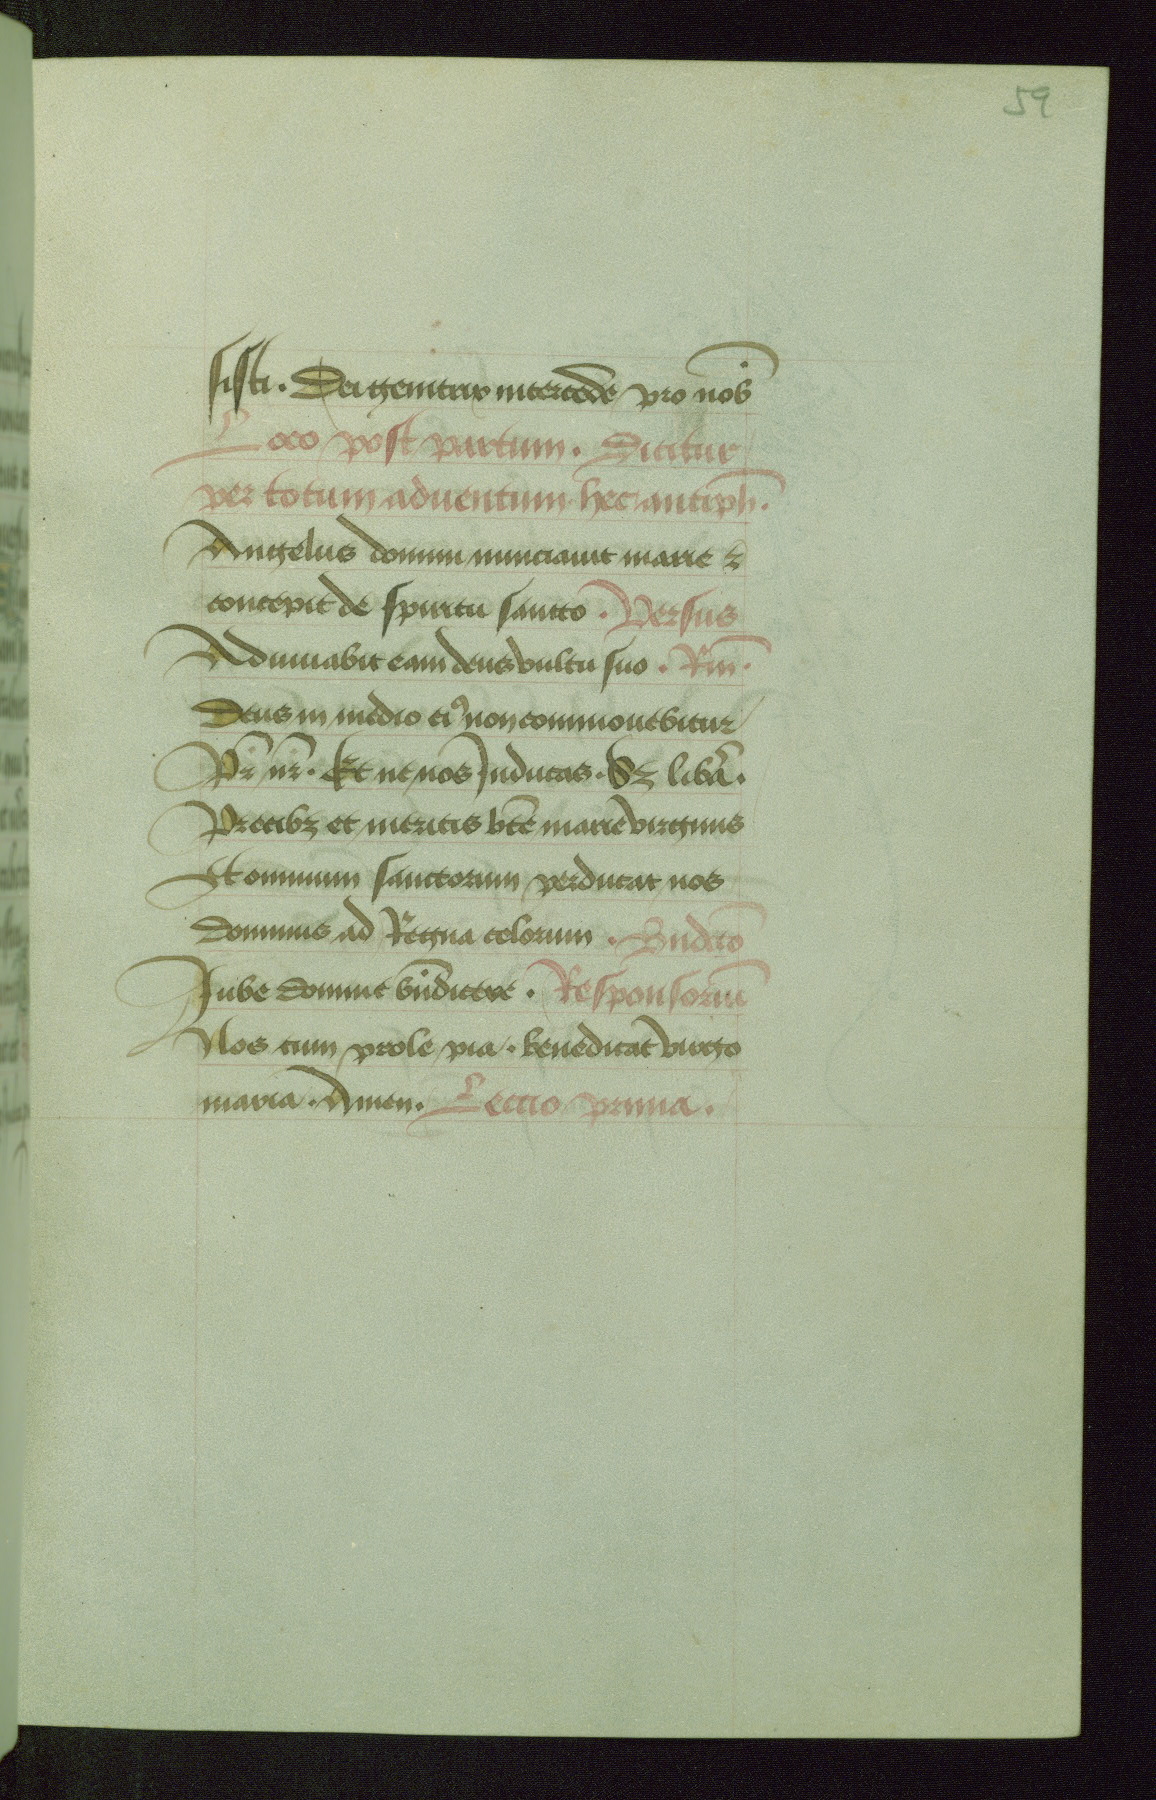 59
sisti. Dei genitrix intercede pro nob̄
Loco post partum. Dicitur
per totum aduentum hec antiph̄.
Angelus domini nunciauit marie ⁊
concepit de spiritu sancto. Versus
Adiuuabit eam deus vultu suo. Rm̄.
Deus in medio eiꝰ non commouebitur
Pr̄ nr̄. Et ne nos Inducas. Sꝫ liba̅.
Precibꝫ et meritis bt̄e marie virginis
Et omnium sanctorum perducat nos
dominus ad Regna celorum. Bn̄dictō
Jube domine bn̄dicere. Responsoriū
Nos cum prole pia. benedicat virgo
maria. Amen. Lectio prima.